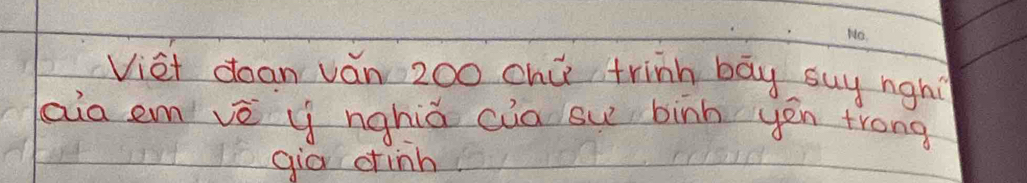 No.
Viết đoạn văn 200 chữ trình bày suy nghĩ
của em về ý nghĩa của sự bình yên trong
gia đình